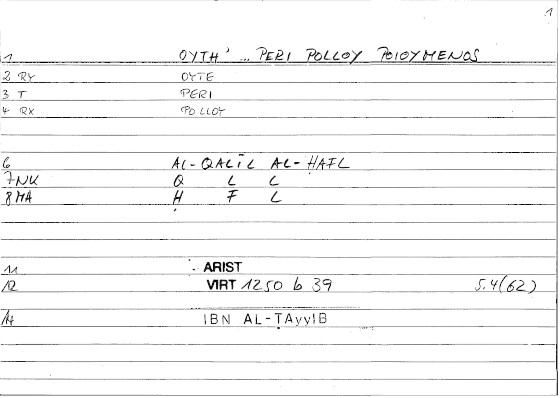 1
1 OYTH' ... PERI POLLOY POIOYMENOS
2 RY OYTE
3 T PERI
4 RX POLLOY
6 AL-QALĪL AL-ḤAFL
7 NK Q L L
8 MA Ḥ F L
11 ARIST
12 VIRT 1250 b 39 5.4(62)
14 IBN AL-ṬAyyIB